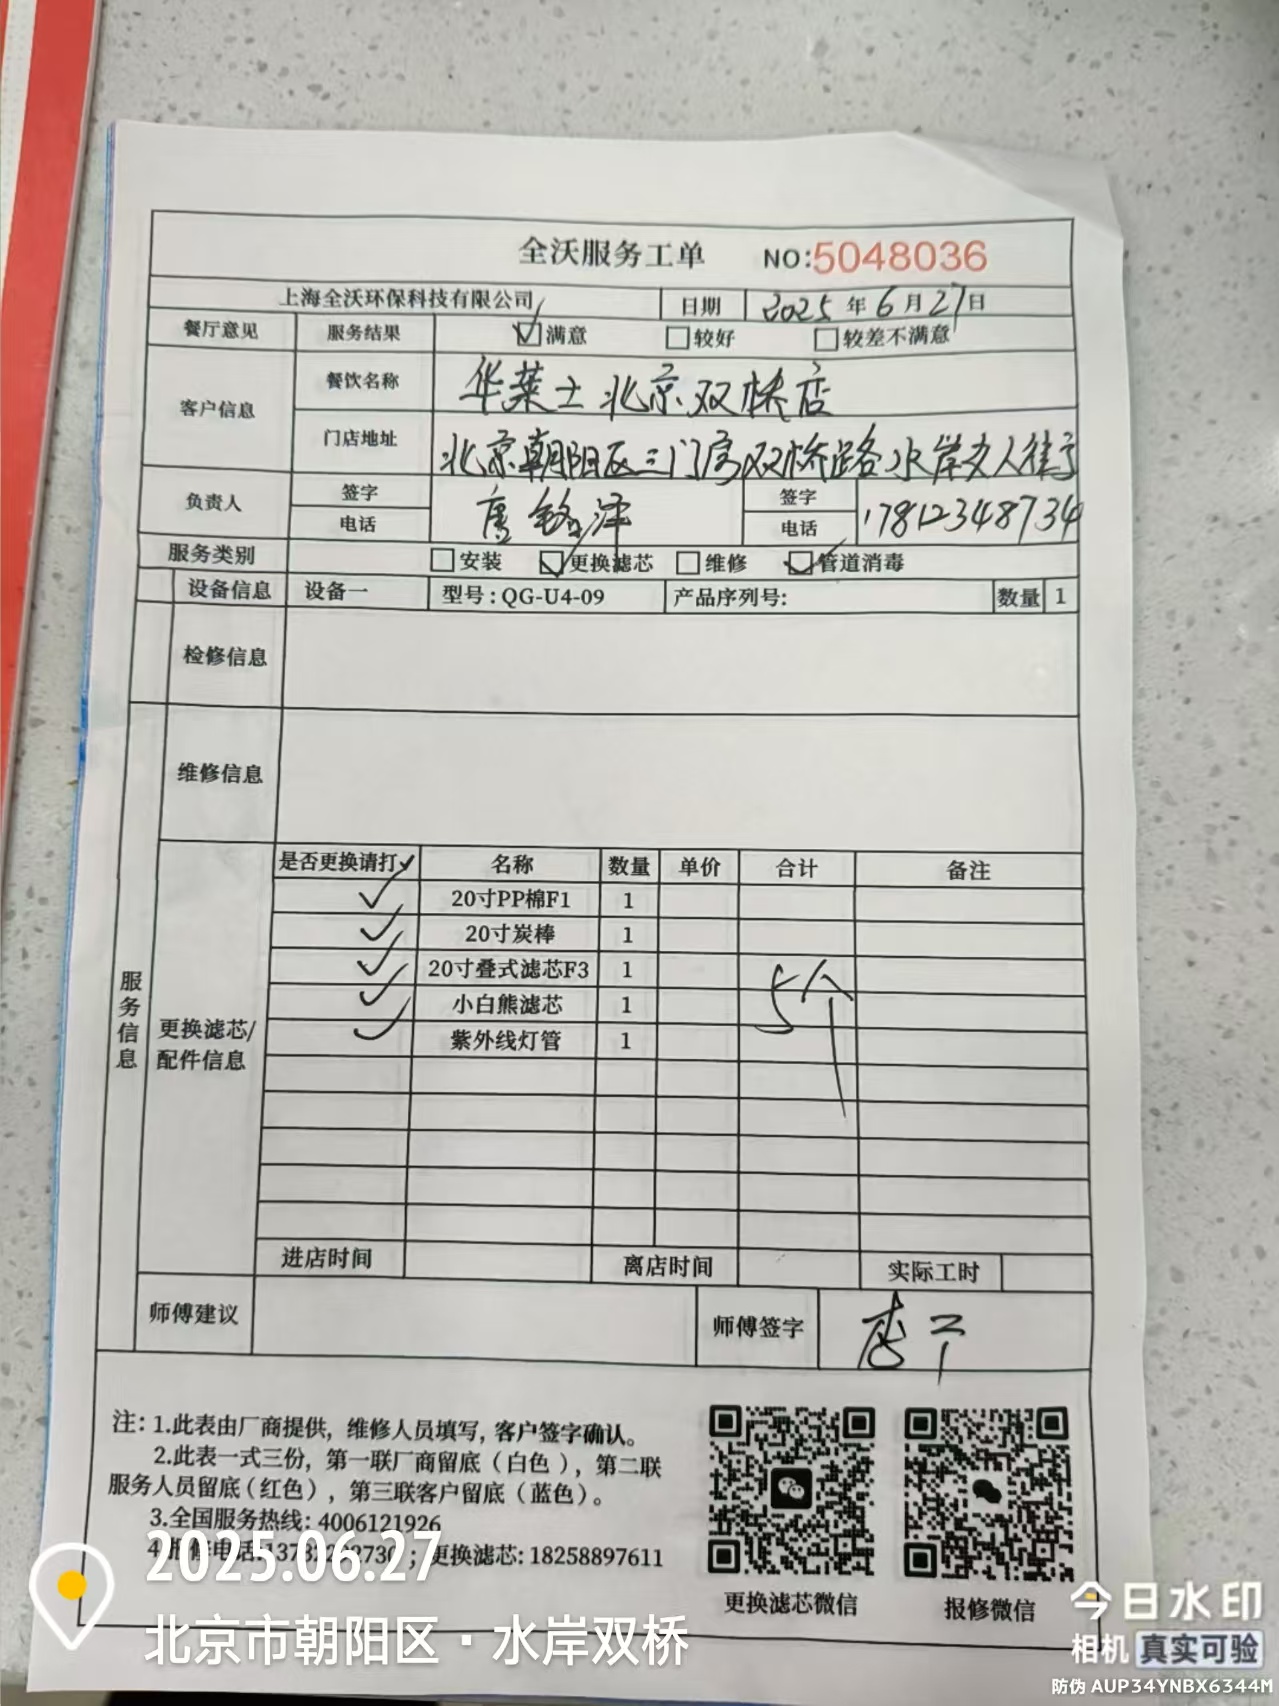 全沃服务工单 NO:5048036
上海全沃环保科技有限公司 日期 2025年6月27日
餐厅意见 服务结果 ☑满意 □较好 □较差不满意
客户信息 餐饮名称 华莱士北京双桥店
门店地址 北京朝阳区三间房双桥路水岸文人街
负责人 签字 唐 泽 签字
电话 电话 17812348734
服务类别 □安装 ☑更换滤芯 □维修 ☑管道消毒
设备信息 设备一 型号:QG-U4-09 产品序列号: 数量 1
检修信息
维修信息
服务信息
更换滤芯/配件信息
是否更换请打✓ 名称 数量 单价 合计 备注
✓ 20寸PP棉F1 1
✓ 20寸炭棒 1
✓ 20寸叠式滤芯F3 1 5个
✓ 小白熊滤芯 1
✓ 紫外线灯管 1
进店时间 离店时间 实际工时
师傅建议 师傅签字 李
注:1.此表由厂商提供,维修人员填写,客户签字确认。
2.此表一式三份,第一联厂商留底(白色),第二联
服务人员留底(红色),第三联客户留底(蓝色)。
3.全国服务热线:4006121926
更换滤芯:18258897611
更换滤芯微信 报修微信
2025.06.27
北京市朝阳区·水岸双桥
今日水印
相机 真实可验
防伪 AUP34YNBX6344M